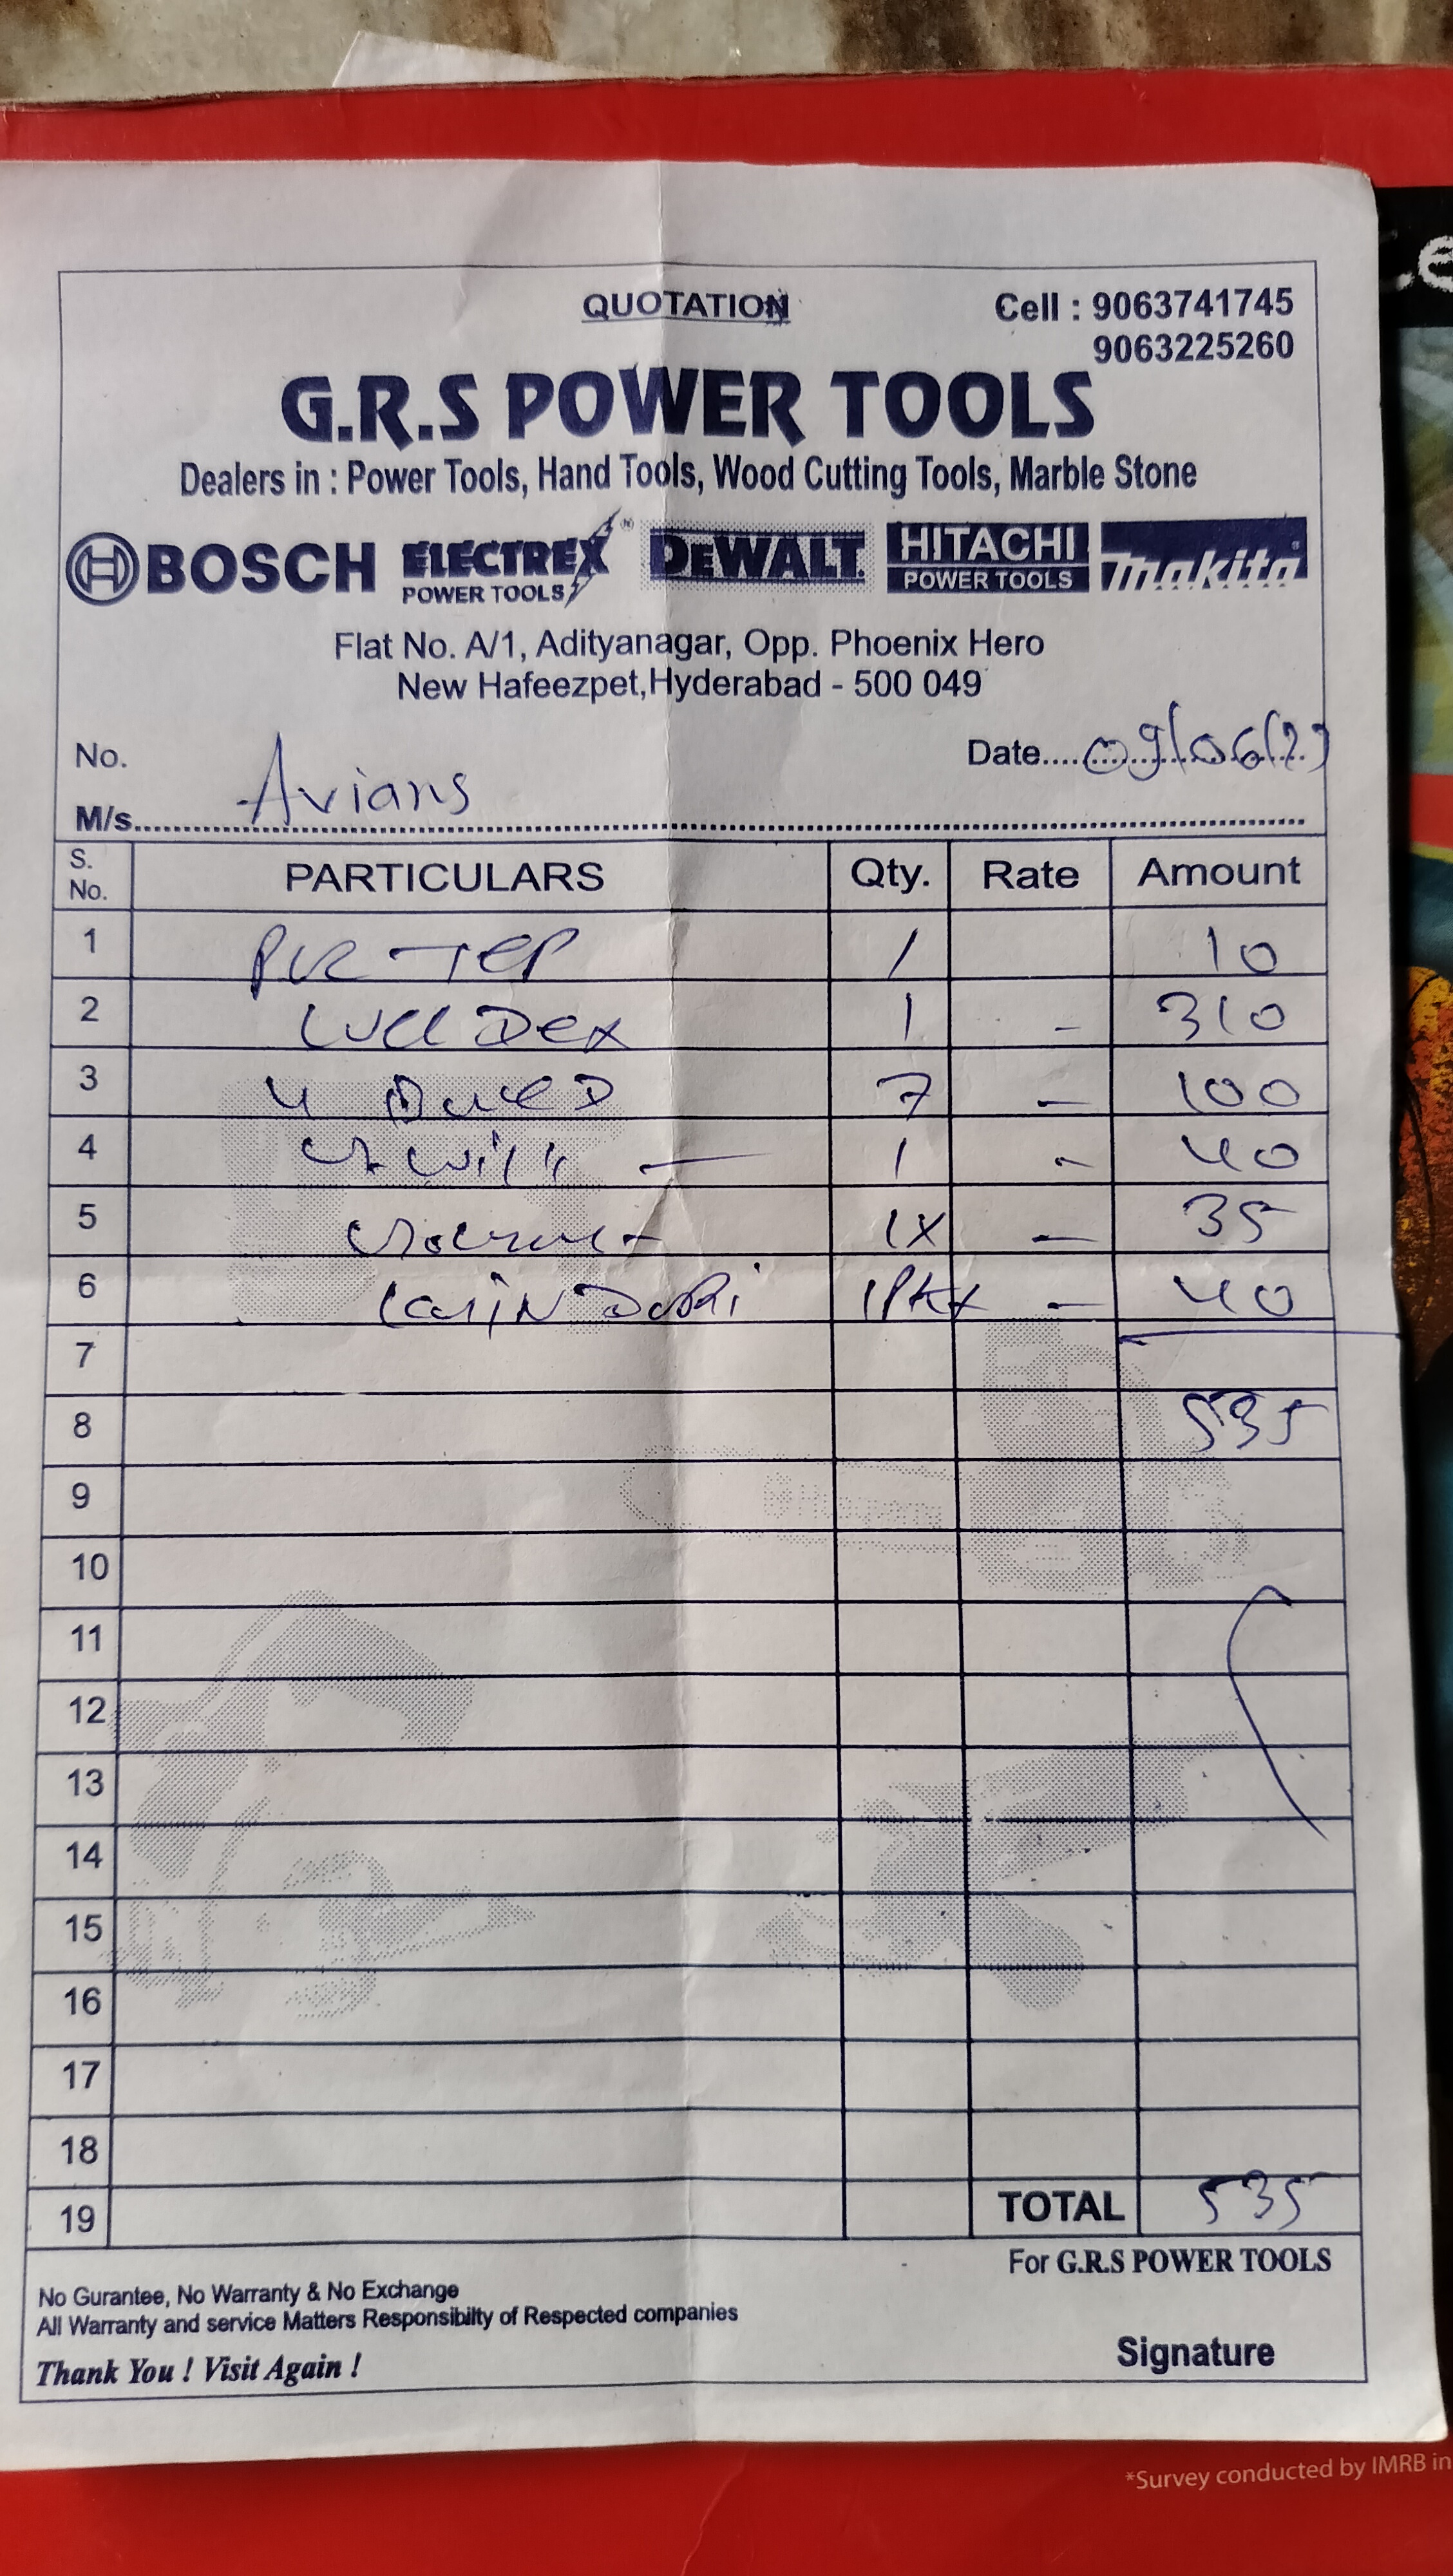 QUOTATION
Cell : 9063741745
9063225260
G.R.S POWER TOOLS
Dealers in : Power Tools, Hand Tools, Wood Cutting Tools, Marble Stone
BOSCH ELECTREX POWER TOOLS DEWALT HITACHI POWER TOOLS makita
Flat No. A/1, Adityanagar, Opp. Phoenix Hero
New Hafeezpet, Hyderabad - 500 049
No. Date....09/06/23
M/s. Avians
S. No. PARTICULARS Qty. Rate Amount
1 1 10
2 1 - 310
3 7 - 100
4 1 - 40
5 1X - 35
6 1Pkt - 40
7
8 535
9
10
11
12
13
14
15
16
17
18
19 TOTAL 535
For G.R.S POWER TOOLS
No Gurantee, No Warranty & No Exchange
All Warranty and service Matters Responsibilty of Respected companies
Thank You ! Visit Again !
Signature
*Survey conducted by IMRB in